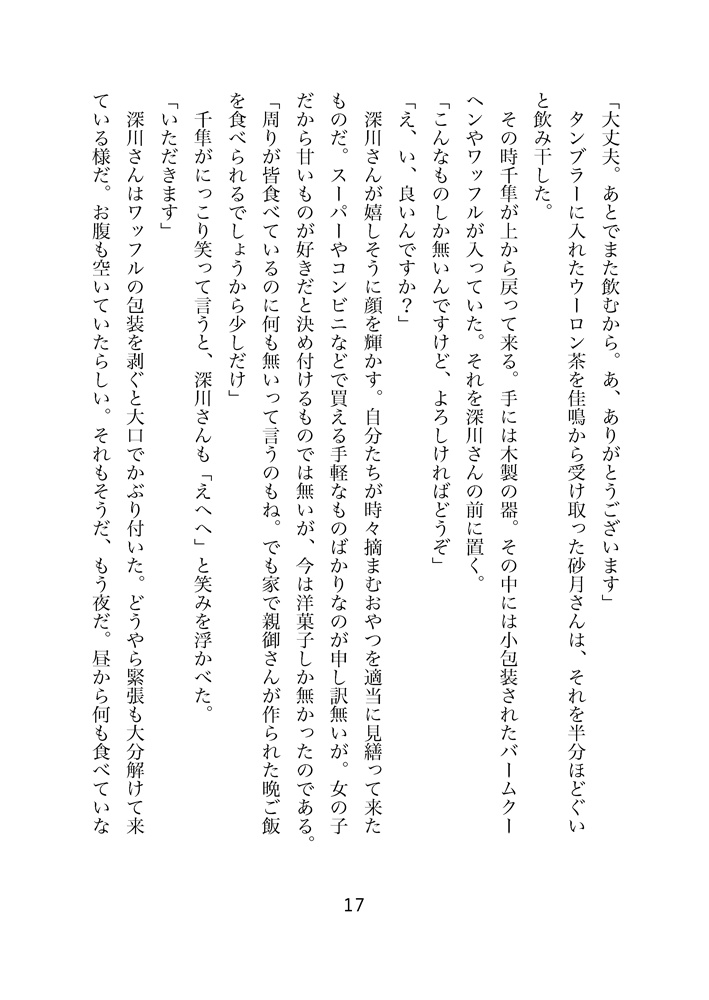 「大丈夫。あとでまた飲むから。あ、ありがとうございます」
　タンブラーに入れたウーロン茶を佳鳴から受け取った砂月さんは、それを半分ほどぐい
と飲み干した。
　その時千隼が上から戻って来る。手には木製の器。その中には小包装されたバームクー
ヘンやワッフルが入っていた。それを深川さんの前に置く。
「こんなものしか無いんですけど、よろしければどうぞ」
「え、い、良いんですか？」
　深川さんが嬉しそうに顔を輝かす。自分たちが時々摘まむおやつを適当に見繕って来た
ものだ。スーパーやコンビニなどで買える手軽なものばかりなのが申し訳無いが。女の子
だから甘いものが好きだと決め付けるものでは無いが、今は洋菓子しか無かったのである。
「周りが皆食べているのに何も無いって言うのもね。でも家で親御さんが作られた晩ご飯
を食べられるでしょうから少しだけ」
　千隼がにっこり笑って言うと、深川さんも「えへへ」と笑みを浮かべた。
「いただきます」
　深川さんはワッフルの包装を剥ぐと大口でかぶり付いた。どうやら緊張も大分解けて来
ている様だ。お腹も空いていたらしい。それもそうだ、もう夜だ。昼から何も食べていな
17